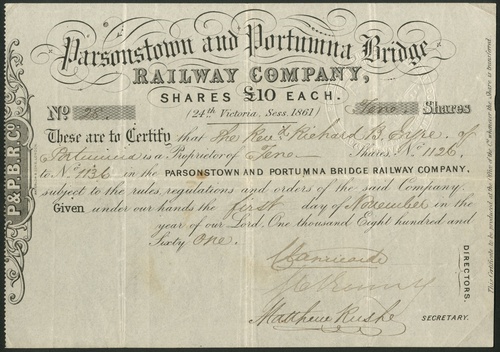 Parsonstown and Portumna Bridge
RAILWAY COMPANY,
SHARES £10 EACH.
(24th Victoria, Sess. 1861)
No. 28. Shares
These are to Certify that The Revd. Richard B. of
Portumna is a Proprietor of Shares No. 1126
to No. 1136 in the PARSONSTOWN AND PORTUMNA BRIDGE RAILWAY COMPANY,
subject to the rules, regulations and orders of the said Company.
Given under our hands the first day of November in the
year of our Lord, One thousand Eight hundred and
Sixty One.
Clanricarde
DIRECTORS.
Matthew
SECRETARY.
P & P. B. R. Co.
That Certificate to be surrendered to the Office of the Co. whenever the Share is transferred.